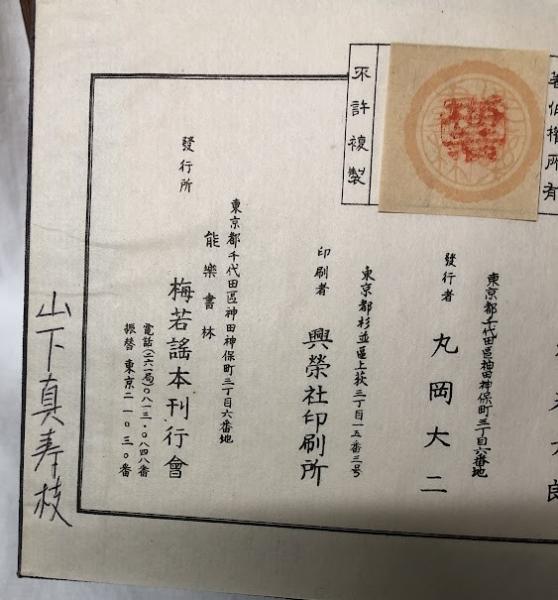 著作權所有
不許複製
東京都千代田區神田神保町三丁目六番地
發行者 丸岡大二
東京都杉並區上荻三丁目一五番三号
印刷者 興榮社印刷所
東京都千代田區神田神保町三丁目六番地
能樂書林
發行所 梅若謠本刊行會
電話(二六一局)〇八一三・〇八四八番
振替 東京二一〇三〇番
山下真寿枝